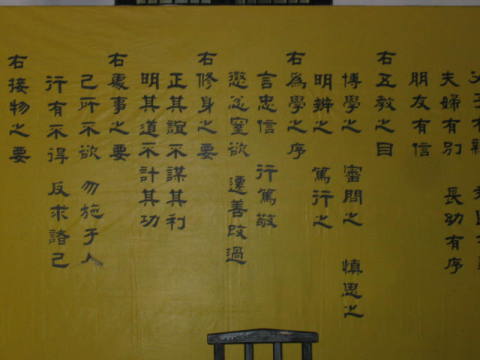 夫婦有別 長幼有序
朋友有信
右五教之目
博學之 審問之 慎思之
明辨之 篤行之
右為學之序
言忠信 行篤敬
懲忿窒欲 遷善改過
右修身之要
正其誼不謀其利
明其道不計其功
右處事之要
己所不欲 勿施于人
行有不得 反求諸己
右接物之要